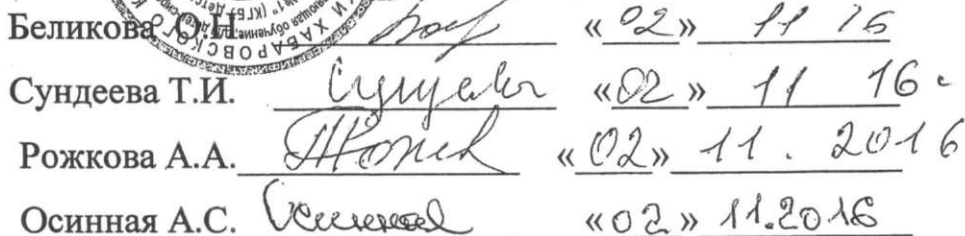 Беликова О.Н. «02» 11 16
Сундеева Т.И. Сундеева «02» 11 16 г
Рожкова А.А. «02» 11. 2016
Осинная А.С. «02» 11.2016